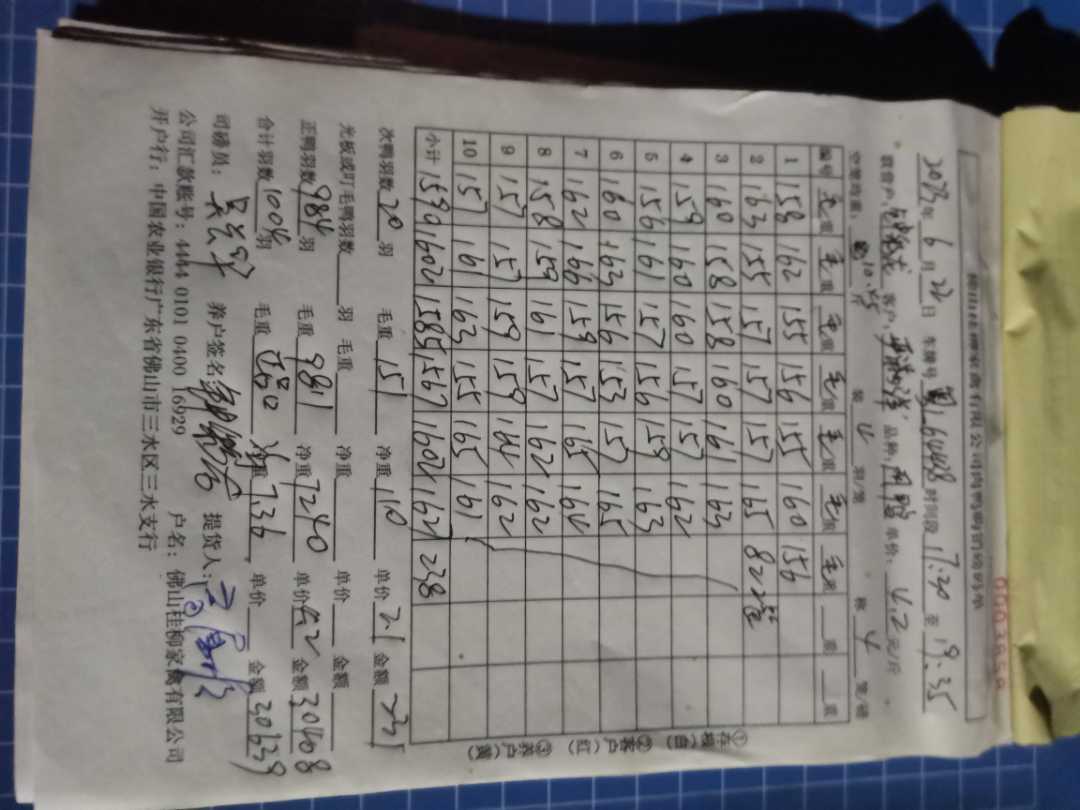 佛山桂柳家禽有限公司肉鸭购销过磅码单
0003858
2023年6月22日 车牌号 粤 64488 时间段 17:20 至 19:35
养户: 客户: 品种: 单价: 4.2 元/斤
空笼均重: 10. 斤 装 12 羽/笼 称 4 笼/磅
编号 毛重 毛重 毛重 毛重 毛重 毛重 毛重 重 重
1 158 162 155 156 155 160 156
2 163 155 157 157 157 165 82笼
3 160 158 158 160 161 163
4 159 160 160 157 157 162
5 156 161 157 156 159 163
6 160 163 156 153 157 165
7 162 166 159 157 165 164
8 158 159 161 157 162 162
9 157 157 159 159 164 162
10 157 161 163 155 165 161
小计 1590 1602 1585 1567 1602 1627 238
①存根(白) ②客户(红) ③养户(黄)
次鸭羽数 20 羽 毛重 151 净重 110 单价 2.1 金额 231
光板或盯毛鸭羽数 羽 毛重 净重 单价 金额
正鸭羽数 984 羽 毛重 9811 净重 7240 单价 4.2 金额 30408
合计羽数 1004 羽 毛重 净重 7.36 单价 金额 30639
司磅员: 养户签名 提货人:
公司汇款账号: 4444 0101 0400 16929 户名: 佛山桂柳家禽有限公司
开户行: 中国农业银行广东省佛山市三水区三水支行